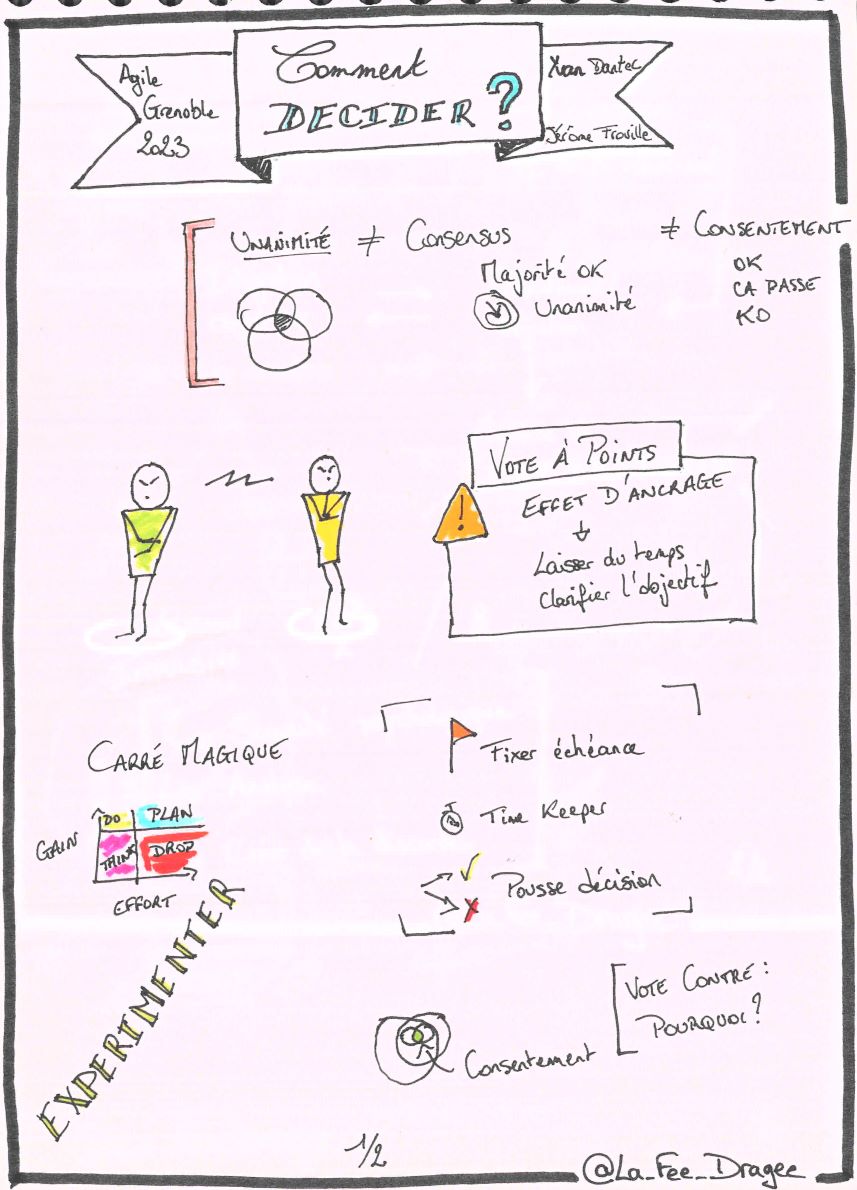 Agile
Grenoble
2023
Comment
DECIDER ?
Yvan Dantec
Jérôme Froville
UNANIMITÉ ≠ Consensus
Majorité OK
Unanimité
≠ CONSENTEMENT
OK
CA PASSE
KO
VOTE À POINTS
EFFET D'ANCRAGE
Laisser du temps
Clarifier l'objectif
CARRÉ MAGIQUE
GAIN
DO PLAN
THINK DROP
EFFORT
EXPERIMENTER
Fixer échéance
Time Keeper
Pousse décision
Consentement
VOTE CONTRE :
POURQUOI ?
1/2
@La_Fee_Dragee